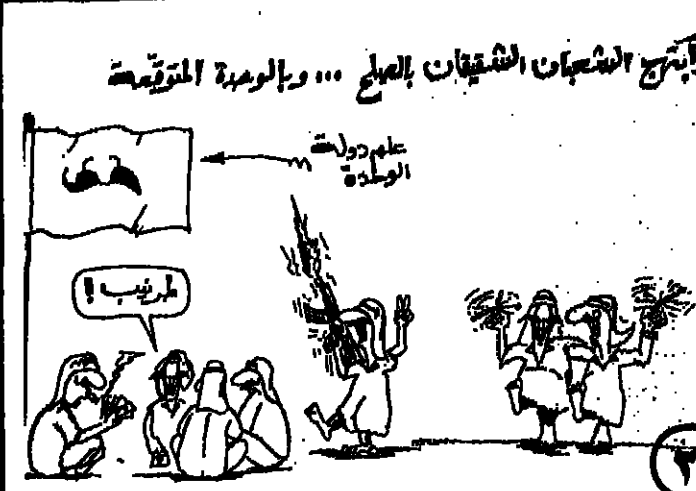 ابتهج الشعبان الشقيقان بالصلح ... وبالوحدة المتوقعة
علم دولة
الوحدة
طرنيب !